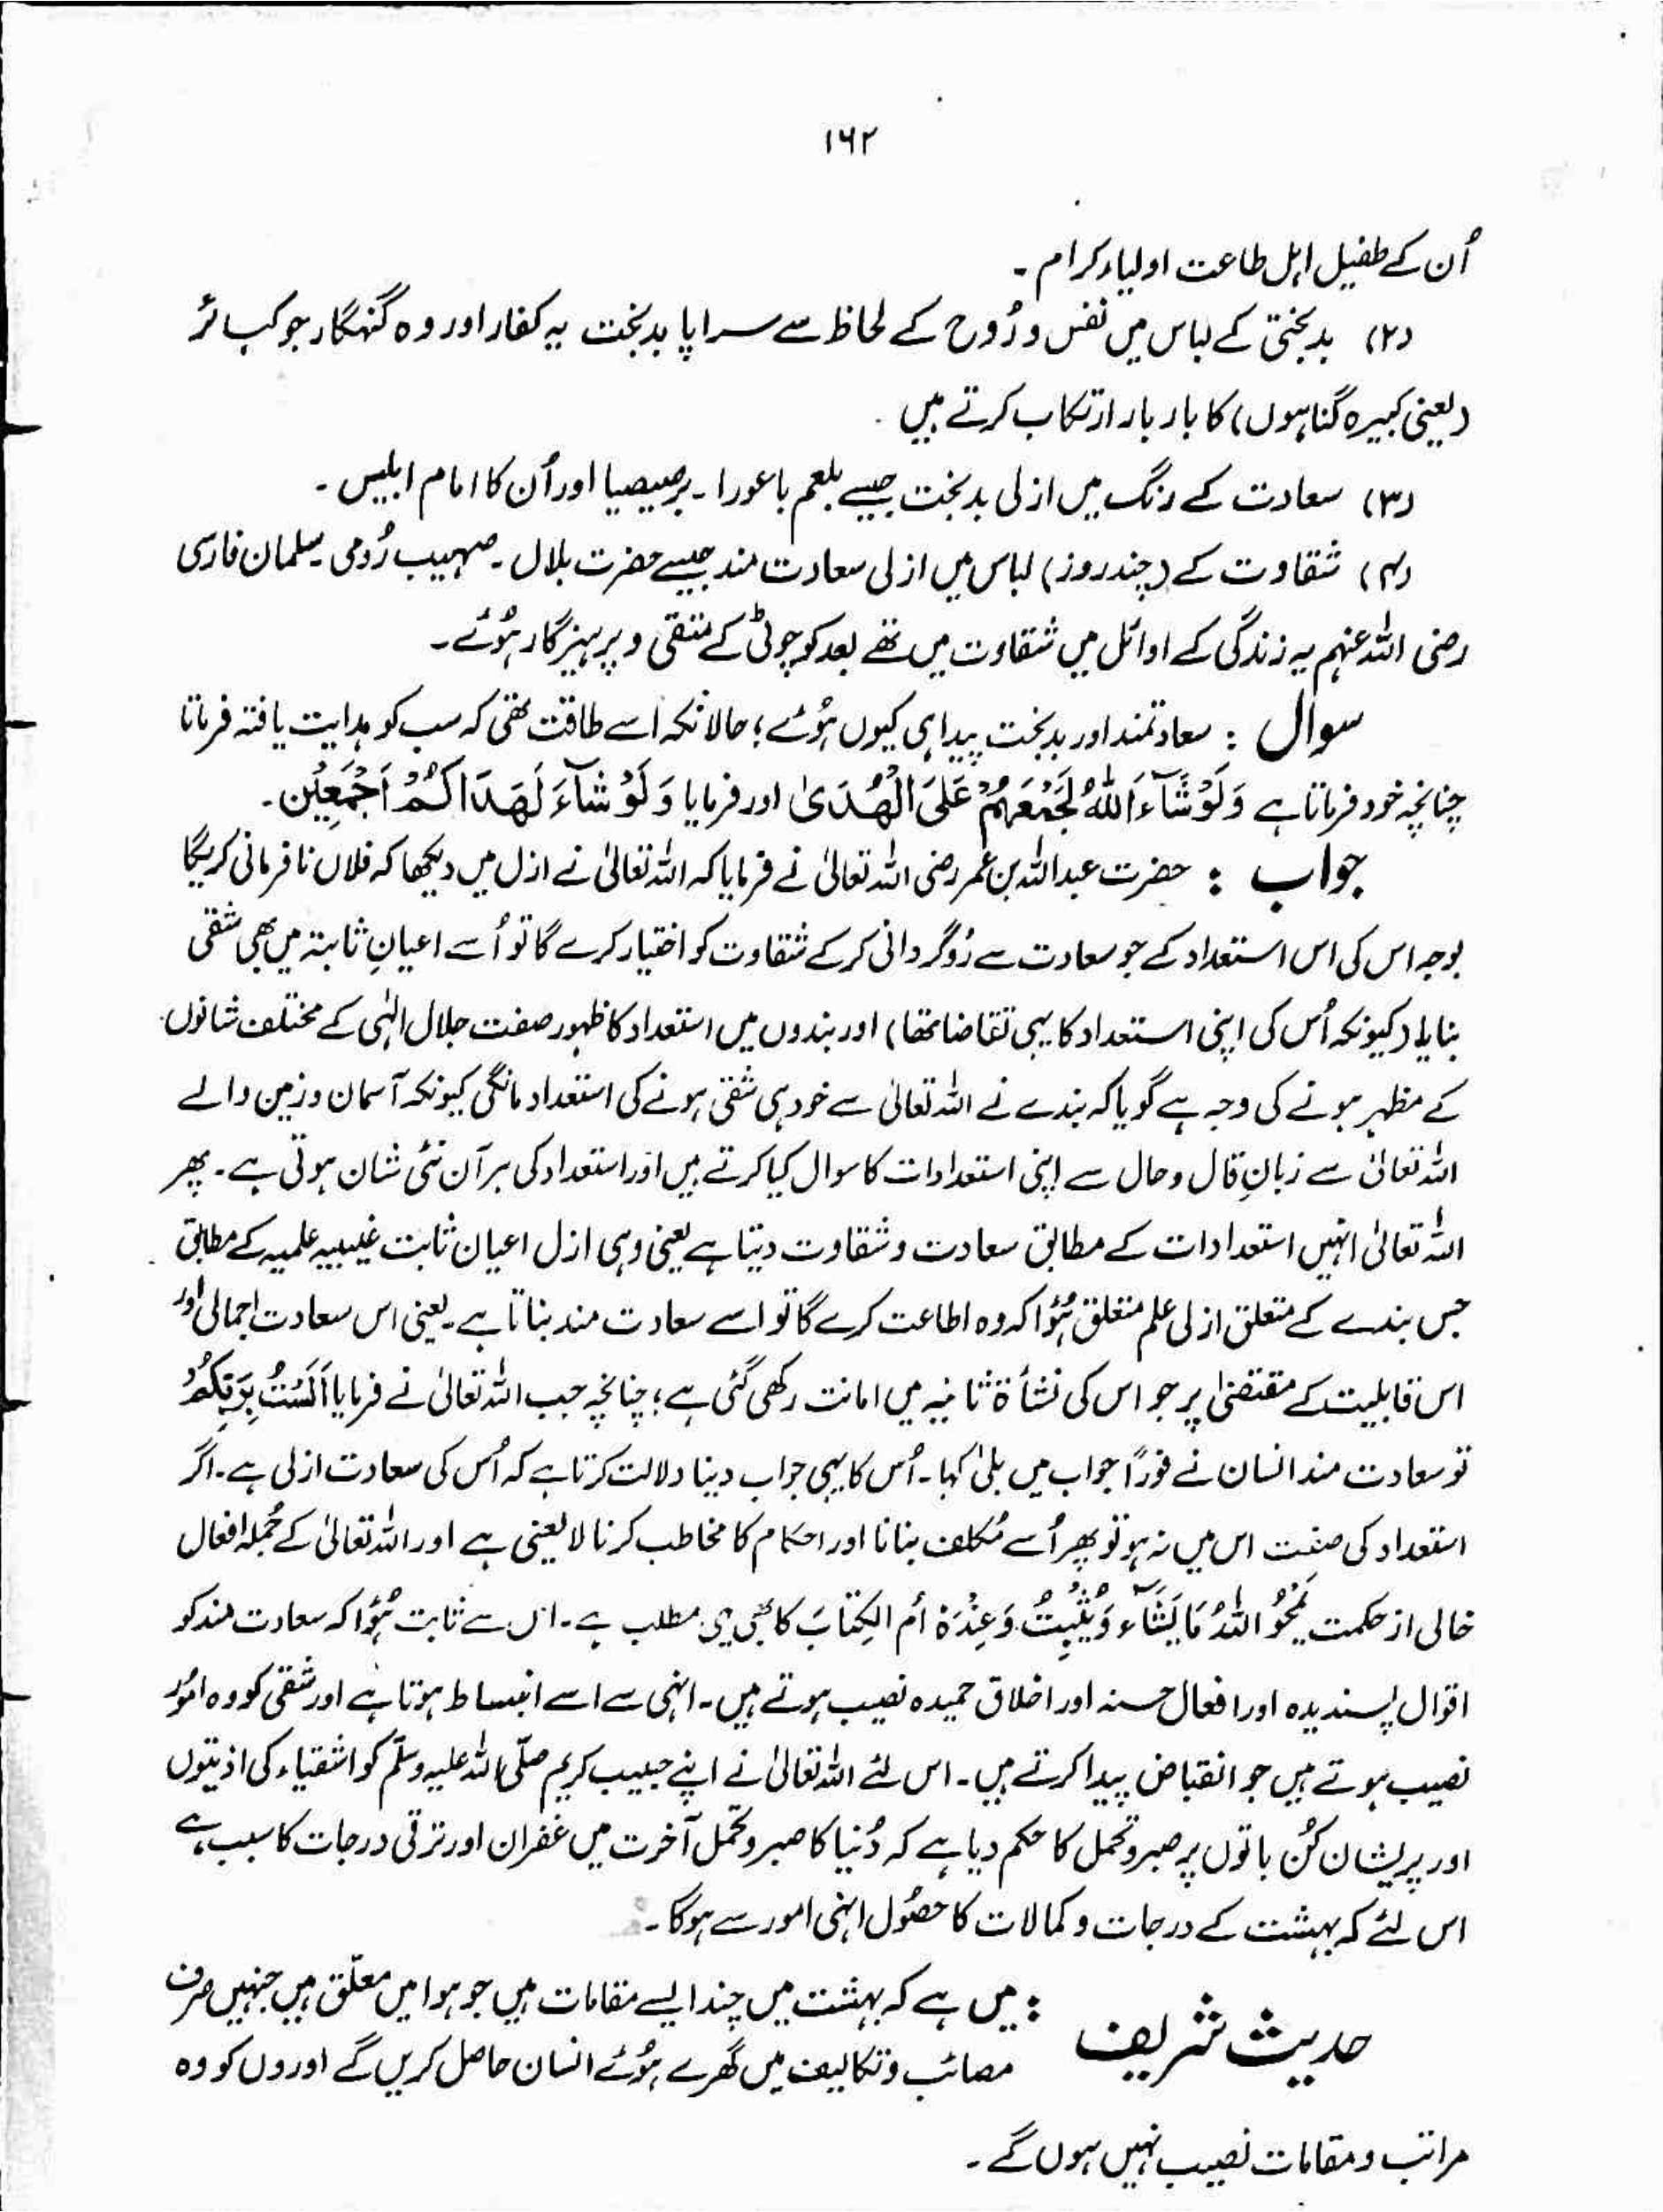 ۱۶۲
اُن کے طفیل اہل طاعت اولیاء کرام ۔
(۲) بدبختی کے لباس میں نفس و رُوح کے لحاظ سے سراپا بدبخت یہ کفار اور وہ گنہگار جو کبائر
(یعنی کبیرہ گناہوں) کا بار بار ارتکاب کرتے ہیں ۔
(۳) سعادت کے رنگ میں ازلی بدبخت جیسے بلعم باعورا ۔ برصیصیا اور اُن کا امام ابلیس ۔
(۴) شقاوت کے (چند روز) لباس میں ازلی سعادت مند جیسے حضرت بلال ۔ صہیب رُومی ۔ سلمان فارسی
رضی اللہ عنہم یہ زندگی کے اوائل میں شقاوت میں تھے بعد کو چوٹی کے متقی و پرہیزگار ہُوئے ۔
سوال : سعادتمند اور بدبخت پیدا ہی کیوں ہُوئے ؛ حالانکہ اسے طاقت تھی کہ سب کو ہدایت یافتہ فرماتا
چنانچہ خود فرماتا ہے وَلَوْ شَآءَ اللّٰهُ لَجَمَعَهُمْ عَلَی الْهُدَیٰ اور فرمایا وَلَوْ شَآءَ لَهَدَاكُمْ اَجْمَعِیْن ۔
جواب : حضرت عبداللہ بن عُمر رضی اللہ تعالیٰ نے فرمایا کہ اللہ تعالیٰ نے ازل میں دیکھا کہ فلاں نافرمانی کریگا
بوجہ اس کی اس استعداد کے جو سعادت سے رُوگردانی کر کے شقاوت کو اختیار کرے گا تو اُسے اعیانِ ثابتہ میں بھی شقی
بنایا (کیونکہ اُس کی اپنی استعداد کا یہی تقاضا تھا) اور بندوں میں استعداد کا ظہور صفت جلال الٰہی کے مختلف شانوں
کے مظہر ہونے کی وجہ ہے گویا کہ بندے نے اللہ تعالیٰ سے خود ہی شقی ہونے کی استعداد مانگی کیونکہ آسمان و زمین والے
اللہ تعالیٰ سے زبانِ قال و حال سے اپنی استعدادات کا سوال کیا کرتے ہیں اور استعداد کی ہر آن نئی شان ہوتی ہے ۔ پھر
اللہ تعالیٰ انہیں استعدادات کے مطابق سعادت و شقاوت دیتا ہے یعنی وہی ازل اعیان ثابت غیبیہ علمیہ کے مطابق
جس بندے کے متعلق ازلی علم متعلق ہُوا کہ وہ اطاعت کرے گا تو اسے سعادت مند بناتا ہے ۔ یعنی اس سعادت اجمالی اور
اس قابلیت کے مقتضیٰ پر جو اس کی نشأۃ ثانیہ میں امانت رکھی گئی ہے ؛ چنانچہ جب اللہ تعالیٰ نے فرمایا اَلَسْتُ بِرَبِّكُمْ
تو سعادت مند انسان نے فوراً جواب میں بلیٰ کہا ۔ اُس کا یہی جواب دینا دلالت کرتا ہے کہ اُس کی سعادت ازلی ہے ۔ اگر
استعداد کی صفت اس میں نہ ہو تو پھر اُسے مُکلف بنانا اور احکام کا مخاطب کرنا لا یعنی ہے اور اللہ تعالیٰ کے جُملہ افعال
خالی از حکمت یَمْحُو اللّٰهُ مَا یَشَآء وَیُثْبِتُ وَعِنْدَهٗ اُم الکِتَابَ کا بھی یہی مطلب ہے ۔ اس سے ثابت ہُوا کہ سعادت مند کو
اقوال پسندیدہ اور افعال حسنہ اور اخلاق حمیدہ نصیب ہوتے ہیں ۔ انہی سے اسے انبساط ہوتا ہے اور شقی کو وہ امُور
نصیب ہوتے ہیں جو انقباض پیدا کرتے ہیں ۔ اس لئے اللہ تعالیٰ نے اپنے حبیب کریم صلّی اللہ علیہ وسلّم کو اشقیاء کی اذیتوں
اور پریشان کُن باتوں پر صبر و تحمل کا حکم دیا ہے کہ دُنیا کا صبر و تحمل آخرت میں غفران اور ترقی درجات کا سبب ہے
اس لئے کہ بہشت کے درجات و کمالات کا حصُول انہی امور سے ہوگا ۔
حدیث شریف : میں ہے کہ بہشت میں چند ایسے مقامات ہیں جو ہوا میں معلّق ہیں جنہیں صرف
مصائب و تکالیف میں گھرے ہُوئے انسان حاصل کریں گے اوروں کو وہ
مراتب و مقامات نصیب نہیں ہوں گے ۔